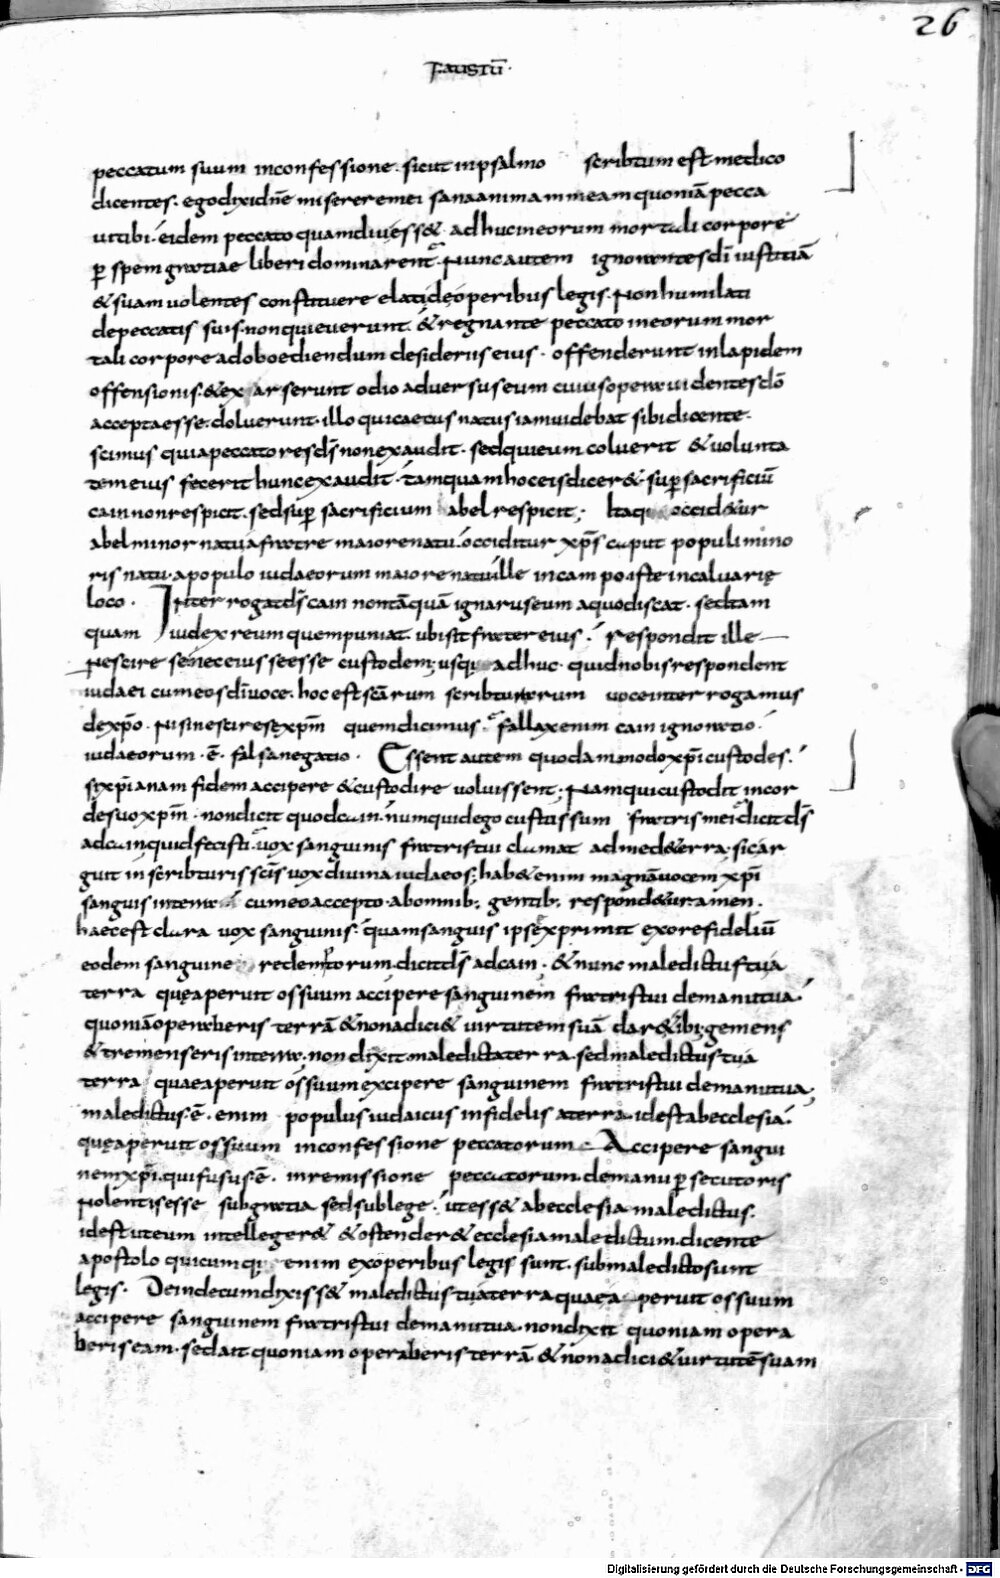 26
FAUSTŪ·
peccatum suum inconfessione· sicut inpsalmo scribtum est· medico
dicentes· egodixidn̄e misereremei sanaanimammeamquoniā pecca
uitibi· eidem peccatoquamdiuess& adhucineorum mortali corpore
ꝑ spem gratiae liberi dominarent· Nuncautem ignorantesdī iustitiā
&suamuolentes constituere elatideoperibus legis· Nonhumilati
depeccatis suis· nonquieuerunt· &regnante peccato ineorum mor
tali corpore adoboediendum desideriis eius· offenderunt inlapidem
offensionis· &exarserunt odio aduersuseum cuiusoperauidentesdō
acceptaesse· doluerunt· illo quicaecus natus iamuidebat sibidicente·
scimus quiapeccatoresds̄ nonexaudit· sedquieum coluerit &uolunta
temeius fecerit huncexaudit· tamquamhoceisdicer&· suꝑ sacrificiū
cain nonrespicit· sedsuꝑ sacrificium abel respicit; Itaq; occid&ur
abel minor natu afratre maiorenatu· occiditur xp̄s caput populi mino
ris natu· apopulo iudaeorum maiorenatu· ille incampo· iste incaluarię
loco· Interrogatds̄ cain nontāquā ignaruseum aquodiscat· sedtam
quam iudex reum quempuniat· ubisit frater eius· Respondit ille
Nescire se· neceius seesse custodem; usq; adhuc· quidnobisrespondent
iudaei cumeosdīuoce· hoc est scārum scribturarum uoceinterrogamus
dexp̄o· Nisinescireseexp̄m quemdicimus· fallax enim cain ignoratio·
iudaeorum·ē· falsanegatio· Essent autem quodammodoxp̄icustodes·
sixp̄ianam fidem accipere &custodire uoluissent; Namquicustodit incor
desuoxp̄m· nondicit quodcain· numquidego custos sum fratris mei· dicit ds̄
adcain quidfecisti· uox sanguinis fratristui clamat admed&erra· sicar
guit in scribturis scīs uoxdiuina iudaeos; hab& enim magnāuocem xp̄i
sanguis interra cumeoaccepto· abomnib; gentib; respond&ur· amen·
haecest clara uox sanguinis· quamsanguis ipseexprimit exorefideliū
eodem sanguine redemtorum· dicitds̄ adcain· &nunc maledictustua
terra quęaperuit ossuum accipere sanguinem fratristui demanutua·
quoniāoperaberis terrā &nonadici& uirtutem suā dar&ibi; gemens
&tremens eris interra· non dixit maledictaterra· sedmaledictustua
terra quaeaperuit ossuum excipere sanguinem fratristui demanutua;
maledictus·ē· enim populus iudaicus infidelis aterra· idest abecclesia·
quęaperuit ossuum inconfessione peccatorum Accipere sangui
nemxp̄i· quifusus·ē· inremissione peccatorum· demanu ꝑsecutoris
Nolentisesse subgratia sedsublege· utess& abecclesia maledictus·
idest uteum intelleger& &ostender& ecclesiamaledictum· dicente
apostolo quicumq; enim exoperibus legis sunt· submaledictosunt
legis· Deindecumdixiss& maledictus tuaterra quaea peruit ossuum
accipere sanguinem fratristui demanutua· nondixit quoniam opera
beris eam· sedait quoniam operaberisterrā &nonadici&uirtutēsuam
Digitalisierung gefördert durch die Deutsche Forschungsgemeinschaft - DFG